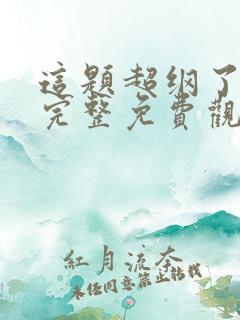 這題超綱了
完整免費觀
紅月流奈
未經同意禁止轉載